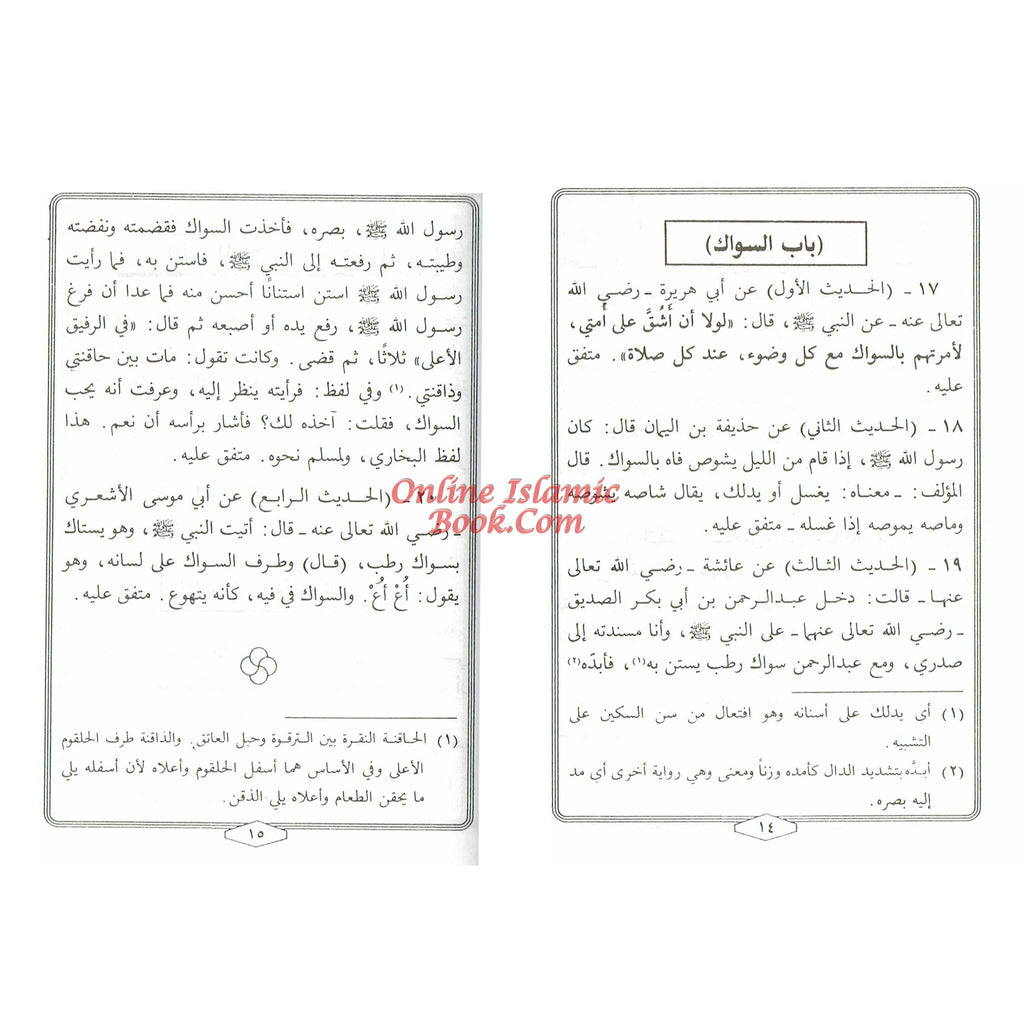 (باب السواك)
١٧ ـ (الحديث الأول) عن أبي هريرة ـ رضي الله
تعالى عنه ـ عن النبي ﷺ، قال: «لولا أن أَشُقَّ على أُمتي،
لأمرتهم بالسواك مع كل وضوء، عند كل صلاة». متفق
عليه.
١٨ ـ (الحديث الثاني) عن حذيفة بن اليمان قال: كان
رسول الله ﷺ، إذا قام من الليل يشوص فاه بالسواك. قال
المؤلف: ـ معناه: يغسل أو يدلك، يقال شاصه يشوصه
وماصه يموصه إذا غسله ـ متفق عليه.
١٩ ـ (الحديث الثالث) عن عائشة ـ رضي الله تعالى
عنها ـ قالت: دخل عبدالرحمن بن أبي بكر الصديق
ـ رضي الله تعالى عنهما ـ على النبي ﷺ، وأنا مسندته إلى
صدري، ومع عبدالرحمن سواك رطب يستن به(١)، فأبدّه(٢)
(١) أي يدلك على أسنانه وهو افتعال من سن السكين على
التشبيه.
(٢) أبدَّه بتشديد الدال كأمده وزناً ومعنى وهي رواية أخرى أي مد
إليه بصره.
١٤
رسول الله ﷺ، بصره، فأخذت السواك فقضمته ونفضته
وطيبته، ثم رفعته إلى النبي ﷺ، فاستن به، فما رأيت
رسول الله ﷺ استن استنانًا أحسن منه فما عدا أن فرغ
رسول الله ﷺ، رفع يده أو أصبعه ثم قال: «في الرفيق
الأعلى» ثلاثًا، ثم قضى. وكانت تقول: مات بين حاقنتي
وذاقنتي.(١) وفي لفظ: فرأيته ينظر إليه، وعرفت أنه يحب
السواك، فقلت: آخذه لك؟ فأشار برأسه أن نعم. هذا
لفظ البخاري، ولمسلم نحوه. متفق عليه.
٢٠ ـ (الحديث الرابع) عن أبي موسى الأشعري
ـ رضي الله تعالى عنه ـ قال: أتيت النبي ﷺ، وهو يستاك
بسواك رطب، (قال) وطرف السواك على لسانه، وهو
يقول: أُعْ أُعْ. والسواك في فيه، كأنه يتهوع. متفق عليه.
(١) الحاقنة النقرة بين الترقوة وحبل العاتق. والذاقنة طرف الحلقوم
الأعلى وفي الأساس هما أسفل الحلقوم وأعلاه لأن أسفله يلي
ما يحقن الطعام وأعلاه يلي الذقن.
١٥
Online Islamic
Book.Com